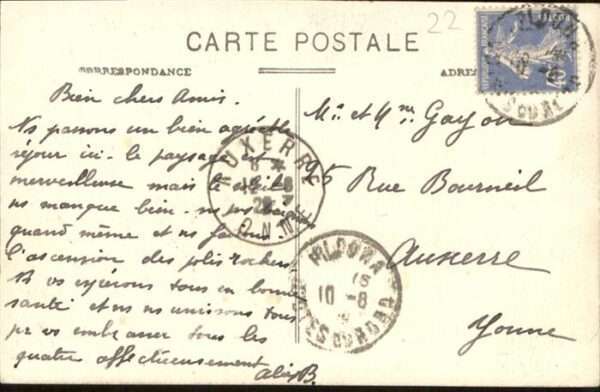 22
CARTE POSTALE
CORRESPONDANCE
ADRES
Bien chers Amis.
Ns passons un bien agréable
séjour ici. le paysage est
merveilleuse mais le soleil
ns manque bien. ns ns baignons
quand même et ns faisons
l'ascension des jolis rochers
Ns vs espérons tous en bonne
santé et ns ns unissons tous
pr vs embrasser tous les
quatre affectueusement
Mr et Mme Gayon
95 Rue Bourneil
Auxerre
Yonne
AUXERRE
YONNE
PLOUMANACH
10 -8
COTES DU NORD